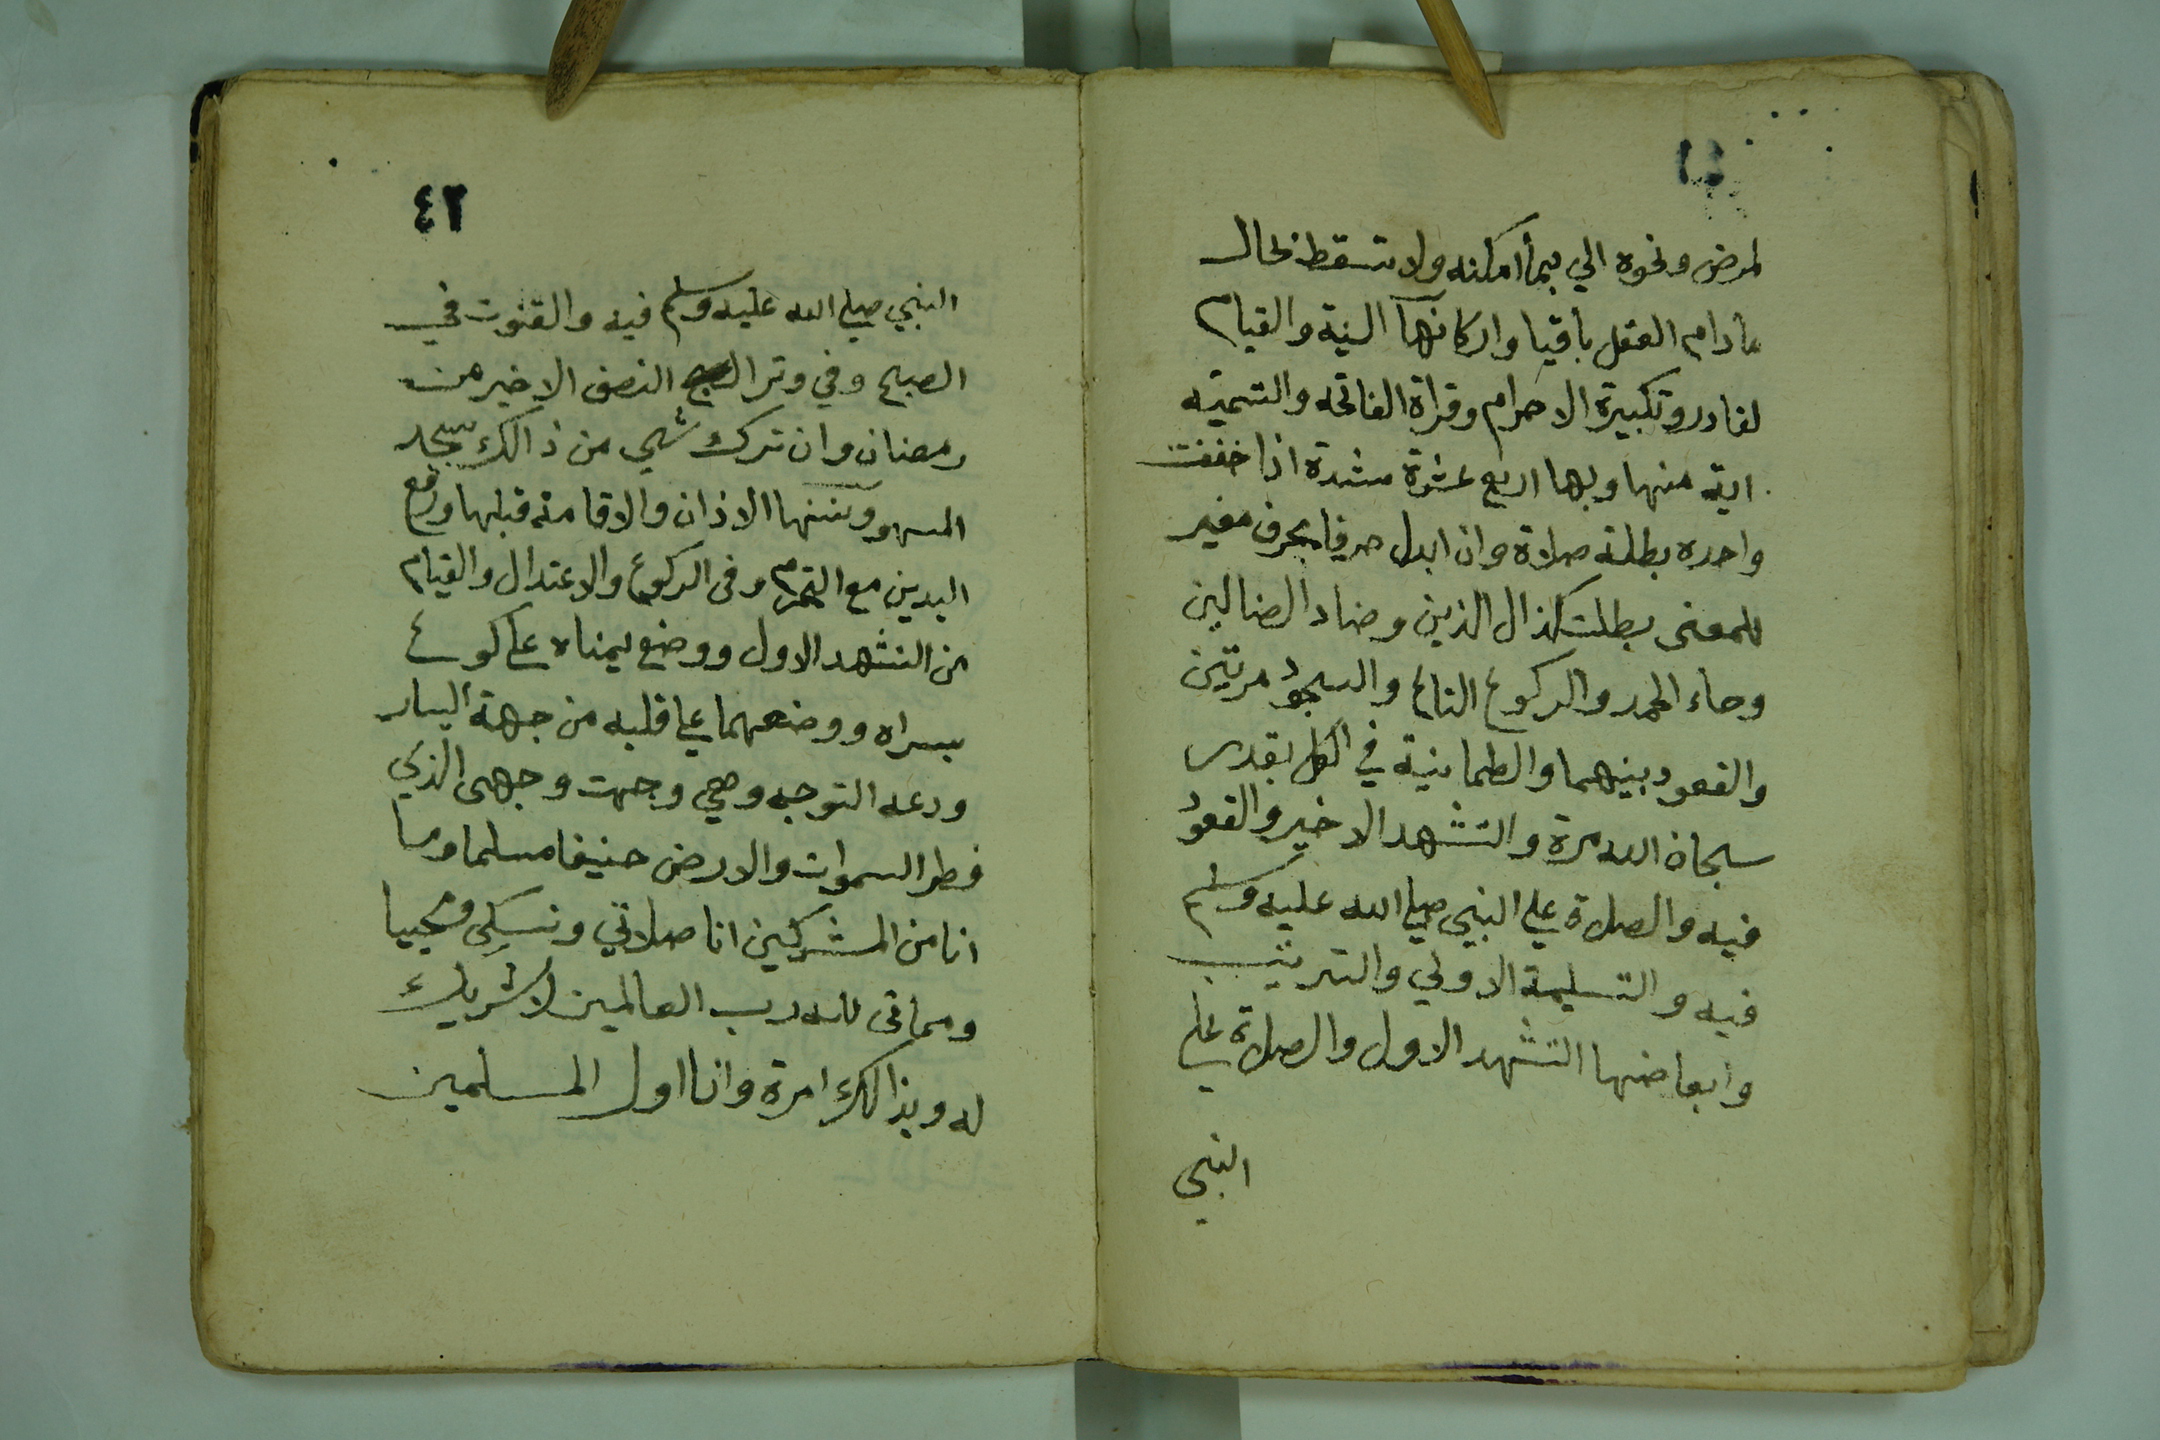 لمرض ونحوه الي بما أمكنه ولا تسقط بحال
ما دام العقل باقيا واركانها النية والقيام
لقادر وتكبيرة الاحرام وقراة الفاتحه والتسميه
اية منها وبها اربع عشرة مشدة اذا خففت
واحده بطلة صلاة وان ابدل حرفا بحرف مغير
للمعنى بطلت كذال الذين وضاد الضالين
وحاء الحمد والركوع التاع والسجود مرتين
والقعود بينهما والطمانية في الكل بقدر
سبحان الله مرة والتشهد الاخير والقعود
فيه والصلاة علي النبي صلي الله عليه وسلم
فيه والتسليمة الاولي والترتيب
وابعاضها التشهد الاول والصلاة علي
النبي
٤٢
النبي صلي الله عليه وسلم فيه والقنوت في
الصبح وفي وتر النصف الاخير من
رمضان وان ترك شي من ذالك سجد
السهو وسننها الاذان والاقامة قبلها ورفع
اليدين مع التحرم وفى الركوع والاعتدال والقيام
من التشهد الاول ووضع يمناه على كوع
يسراه ووضعهما علي قلبه من جهة اليسار
ودعه التوجه وهي وجهت وجهى الذي
فطر السموات والارض حنيفا مسلما وما
انا من المشركين انا صلاتي ونسكي ومحييا
ومماتى لله رب العالمين لا شريك
له وبذالك امرة وانا اول المسلمين